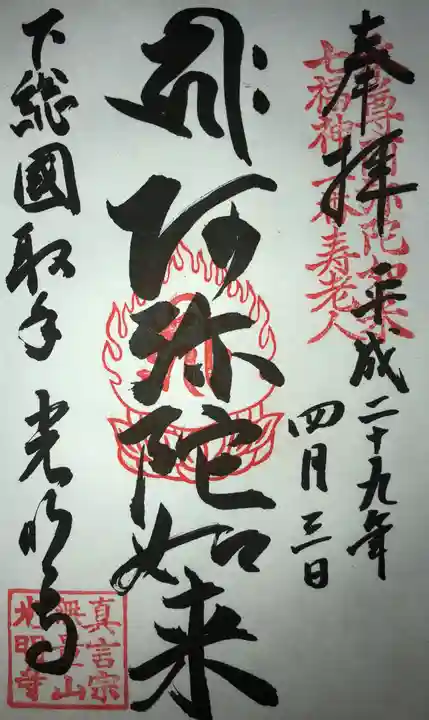 奉拝
平成二十九年
四月三日
本尊 阿弥陀如来
七福神 寿老人
阿弥陀如来
下総國取手 光明寺
真言宗
無量山
光明寺